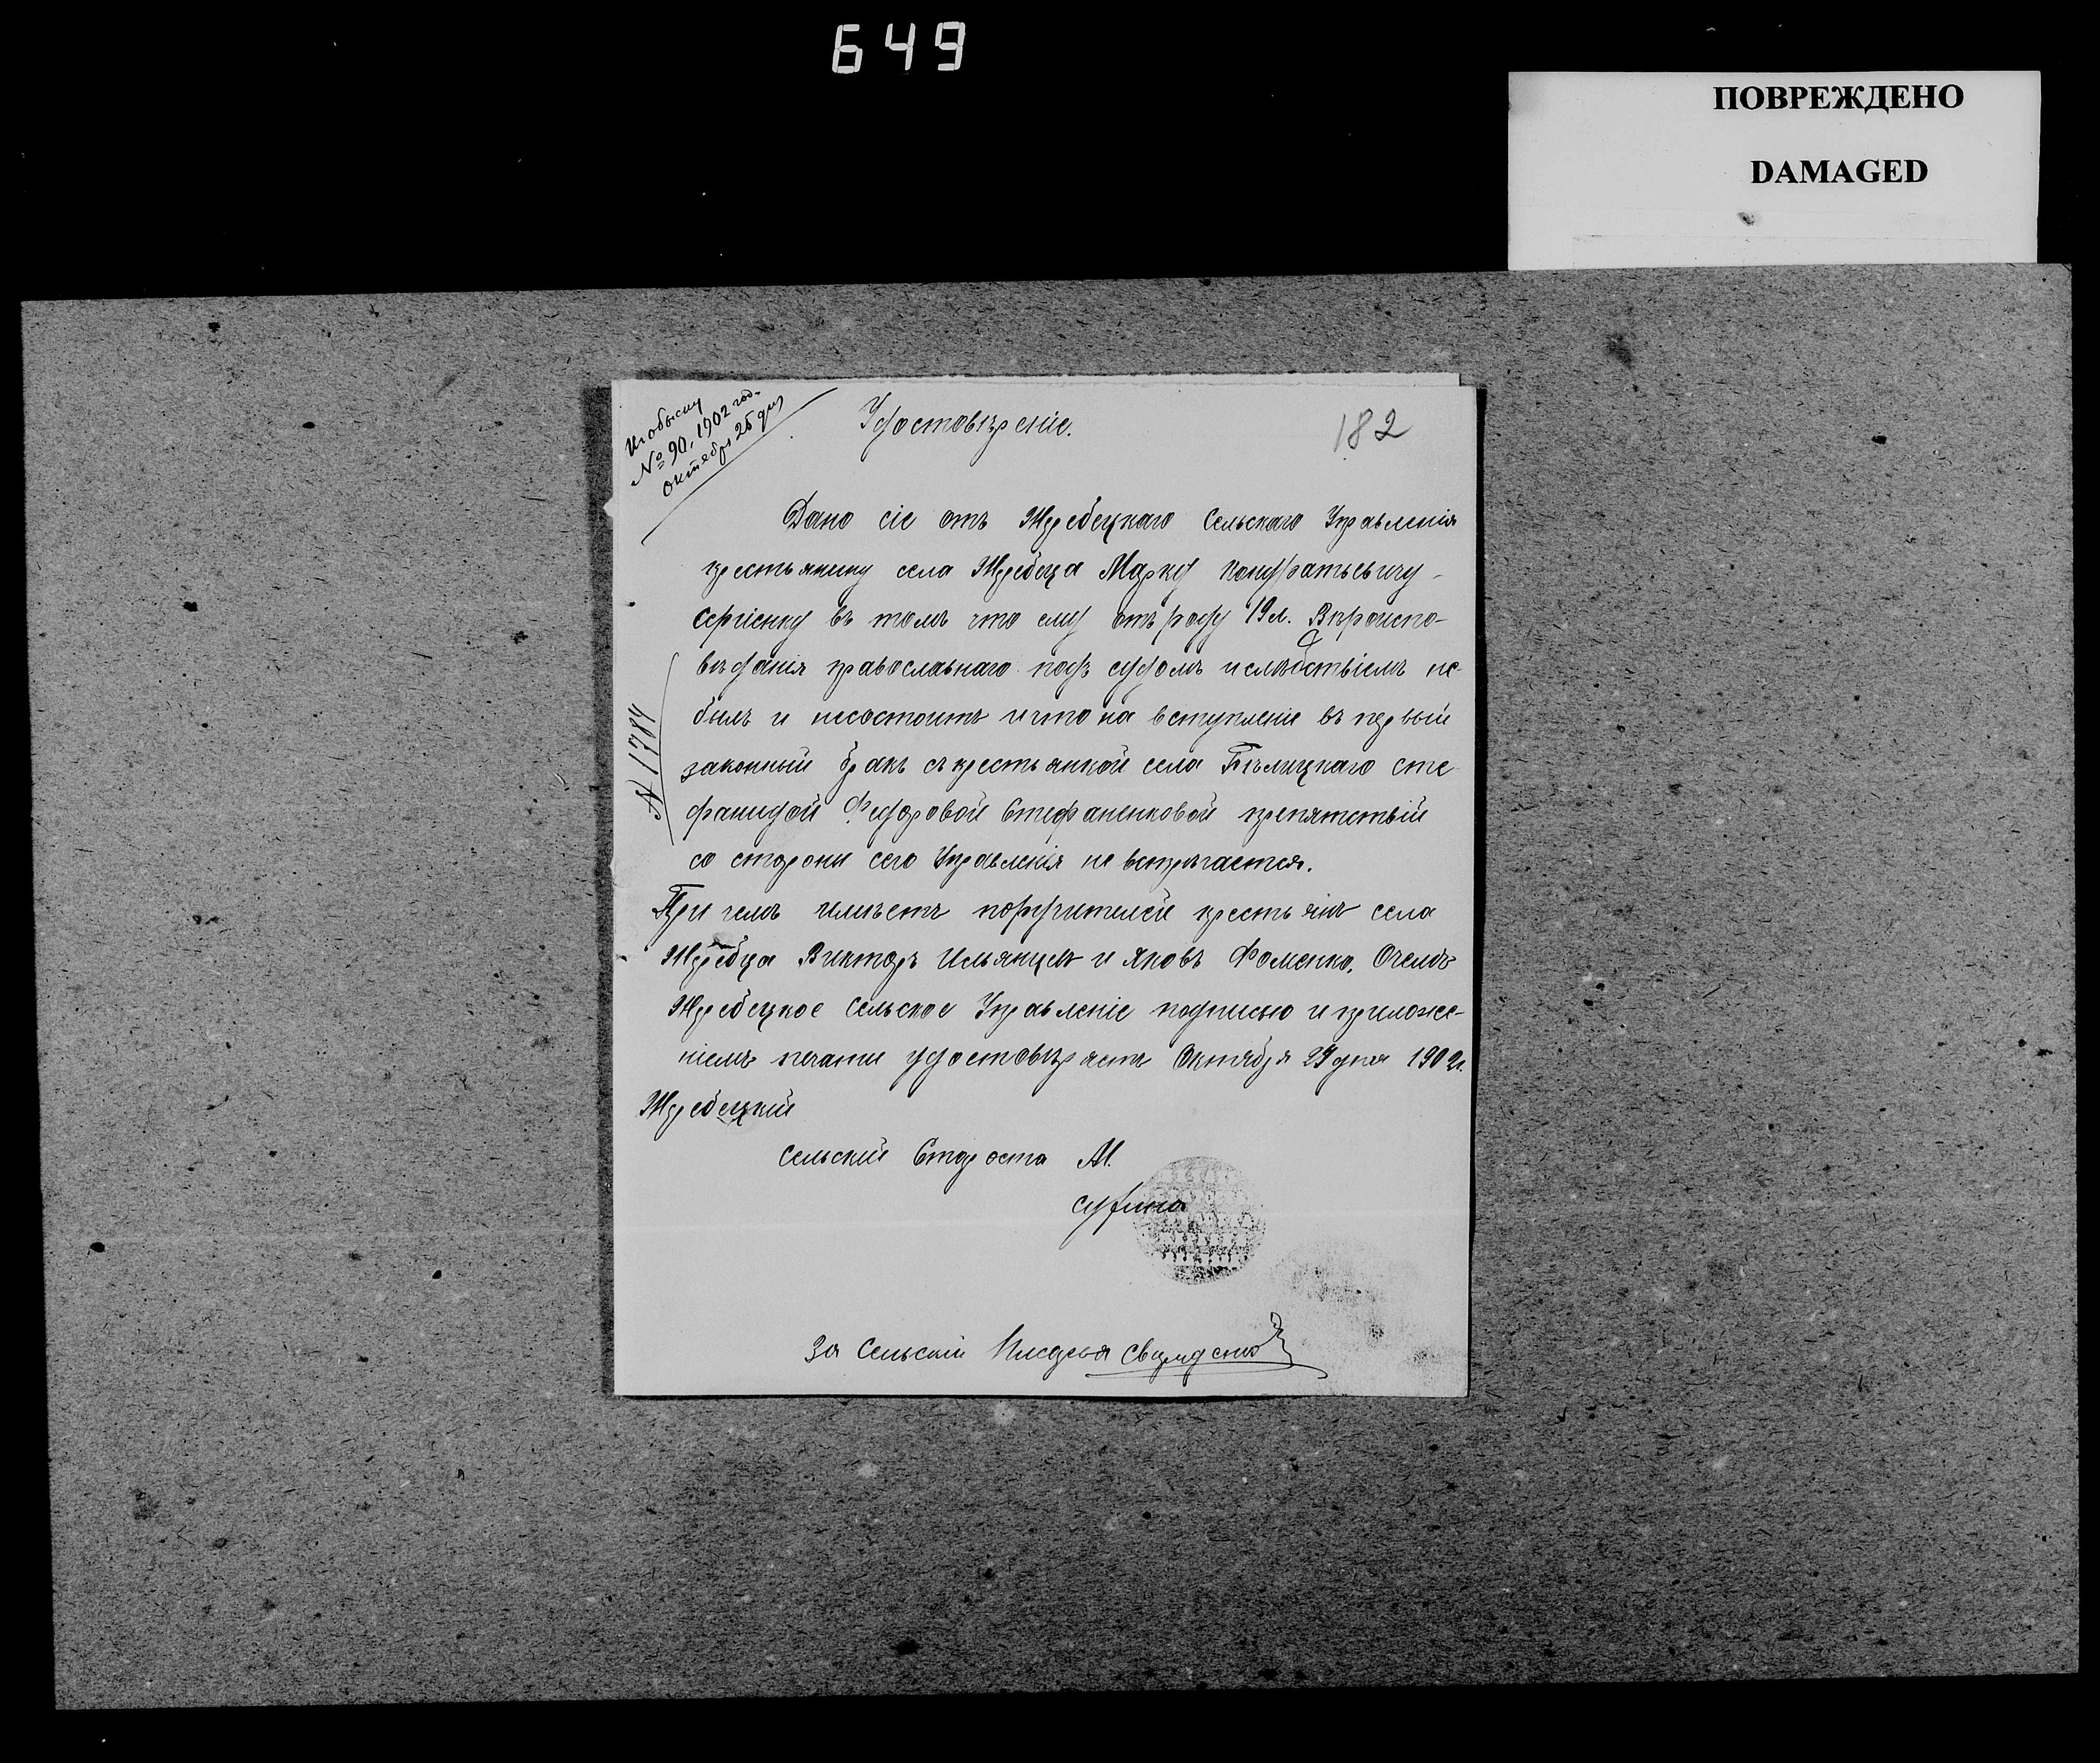 649
ПОВРЕЖДЕНО
DAMAGED
Къ обыску
№ 90, 1902 год.
октября 25 дня
Удостовѣреніе.
182
Дано сіе отъ Жеребецкаго Сельскаго Управленія
крестьянину села Жеребца Марку Кондратьевичу
Сергіенку въ томъ что ему отъ роду 19 л. Вѣроиспо-
вѣданія православнаго подъ судомъ и слѣдствіемъ не
былъ и несостоитъ и что на вступленіе въ первый
законный бракъ съ крестьянкой села Бѣлицкаго Сте
фанидой Федоровой Стефаненковой препятствій
со стороны сего Управленія не встрѣчается.
При чемъ имѣетъ поручителей крестьянъ села
Жеребца Викторъ и Яковъ Фоменко. Очемъ
Жеребецкое Сельское Управленіе подписью и приложе-
ніемъ печати удостовѣряетъ Октября 24 дня 1902 г.
Жеребецкій
Сельскій Староста М.
№ 1784
За Сельскій Писарья